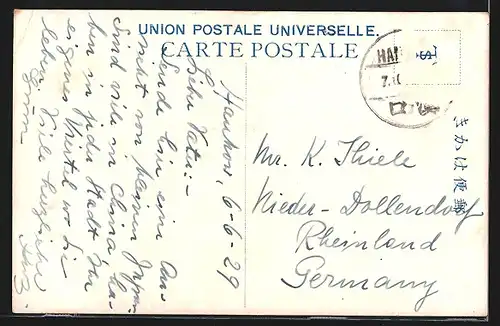 UNION POSTALE UNIVERSELLE.
CARTE POSTALE
HAN
7.
きかは便郵
Hankow, 6-6-29
Lieber Vater:-
Sende hier eine Ans-
sicht von kleinen Japan.
Sind viele in China ha-
ben in jeder Stadt ihr
eigenes Viertel wo sie
leben. Viele herzliche
Mr. K. Thiele
Nieder-Dollendorf
Rheinland
Germany